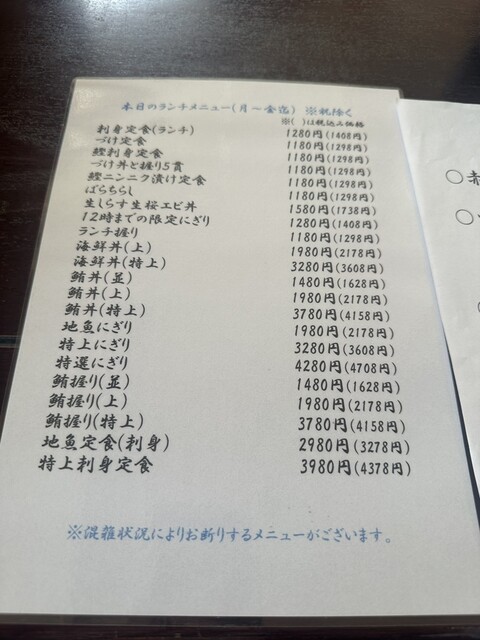 本日のランチメニュー(月〜金迄) ※税除く
※( )は税込み価格
刺身定食(ランチ) 1280円(1408円)
づけ定食 1180円(1298円)
鰹刺身定食 1180円(1298円)
づけ丼と握り5貫 1180円(1298円)
鰹ニンニク漬け定食 1180円(1298円)
ばらちらし 1180円(1298円)
生しらす生桜エビ丼 1580円(1738円)
12時までの限定にぎり 1280円(1408円)
ランチ握り 1180円(1298円)
海鮮丼(上) 1980円(2178円)
海鮮丼(特上) 3280円(3608円)
鮪丼(並) 1480円(1628円)
鮪丼(上) 1980円(2178円)
鮪丼(特上) 3780円(4158円)
地魚にぎり 1980円(2178円)
特上にぎり 3280円(3608円)
特選にぎり 4280円(4708円)
鮪握り(並) 1480円(1628円)
鮪握り(上) 1980円(2178円)
鮪握り(特上) 3780円(4158円)
地魚定食(刺身) 2980円(3278円)
特上刺身定食 3980円(4378円)
※混雑状況によりお断りするメニューがございます。
○赤